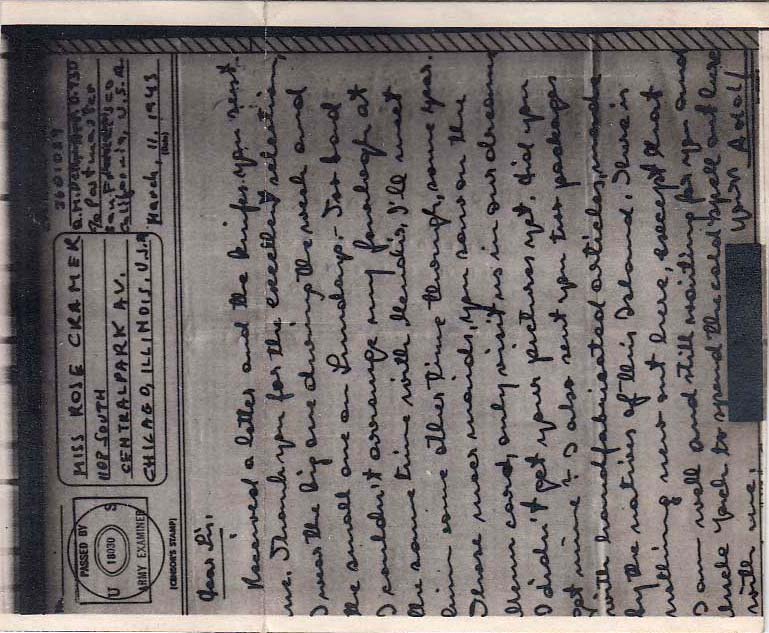 PASSED BY
U S
18030
ARMY EXAMINER
(CENSOR'S STAMP)
MISS ROSE CRAMER
1107 SOUTH
CENTRALPARK AV.
CHICAGO, ILLINOIS, U.S.A
36010
A.P.O. 930
% Postmaster
San Francisco
California, U.S.A.
March, 11. 1943
(Date)
Dear Sis,
Received a letter and the knifes you sent
me. Thank you for the excellent selection,
I wear the big one during the week and
the small one on Sundays.- Too bad
I couldn't arrange my furlough at
the same time with Mendis, I'll meet
him some other time though, some year.
Those mermaids, you saw on the
card, only visit us in our dreams
I didn't get your pictures yet. did you
get mine? I also sent you two packages
with handfabricated articles, made
by the natives of this Island. There is
nothing new out here, except that
I am well and still waiting for you and
uncle Jack to spend the cold spell out here
with me.
yours Adolf